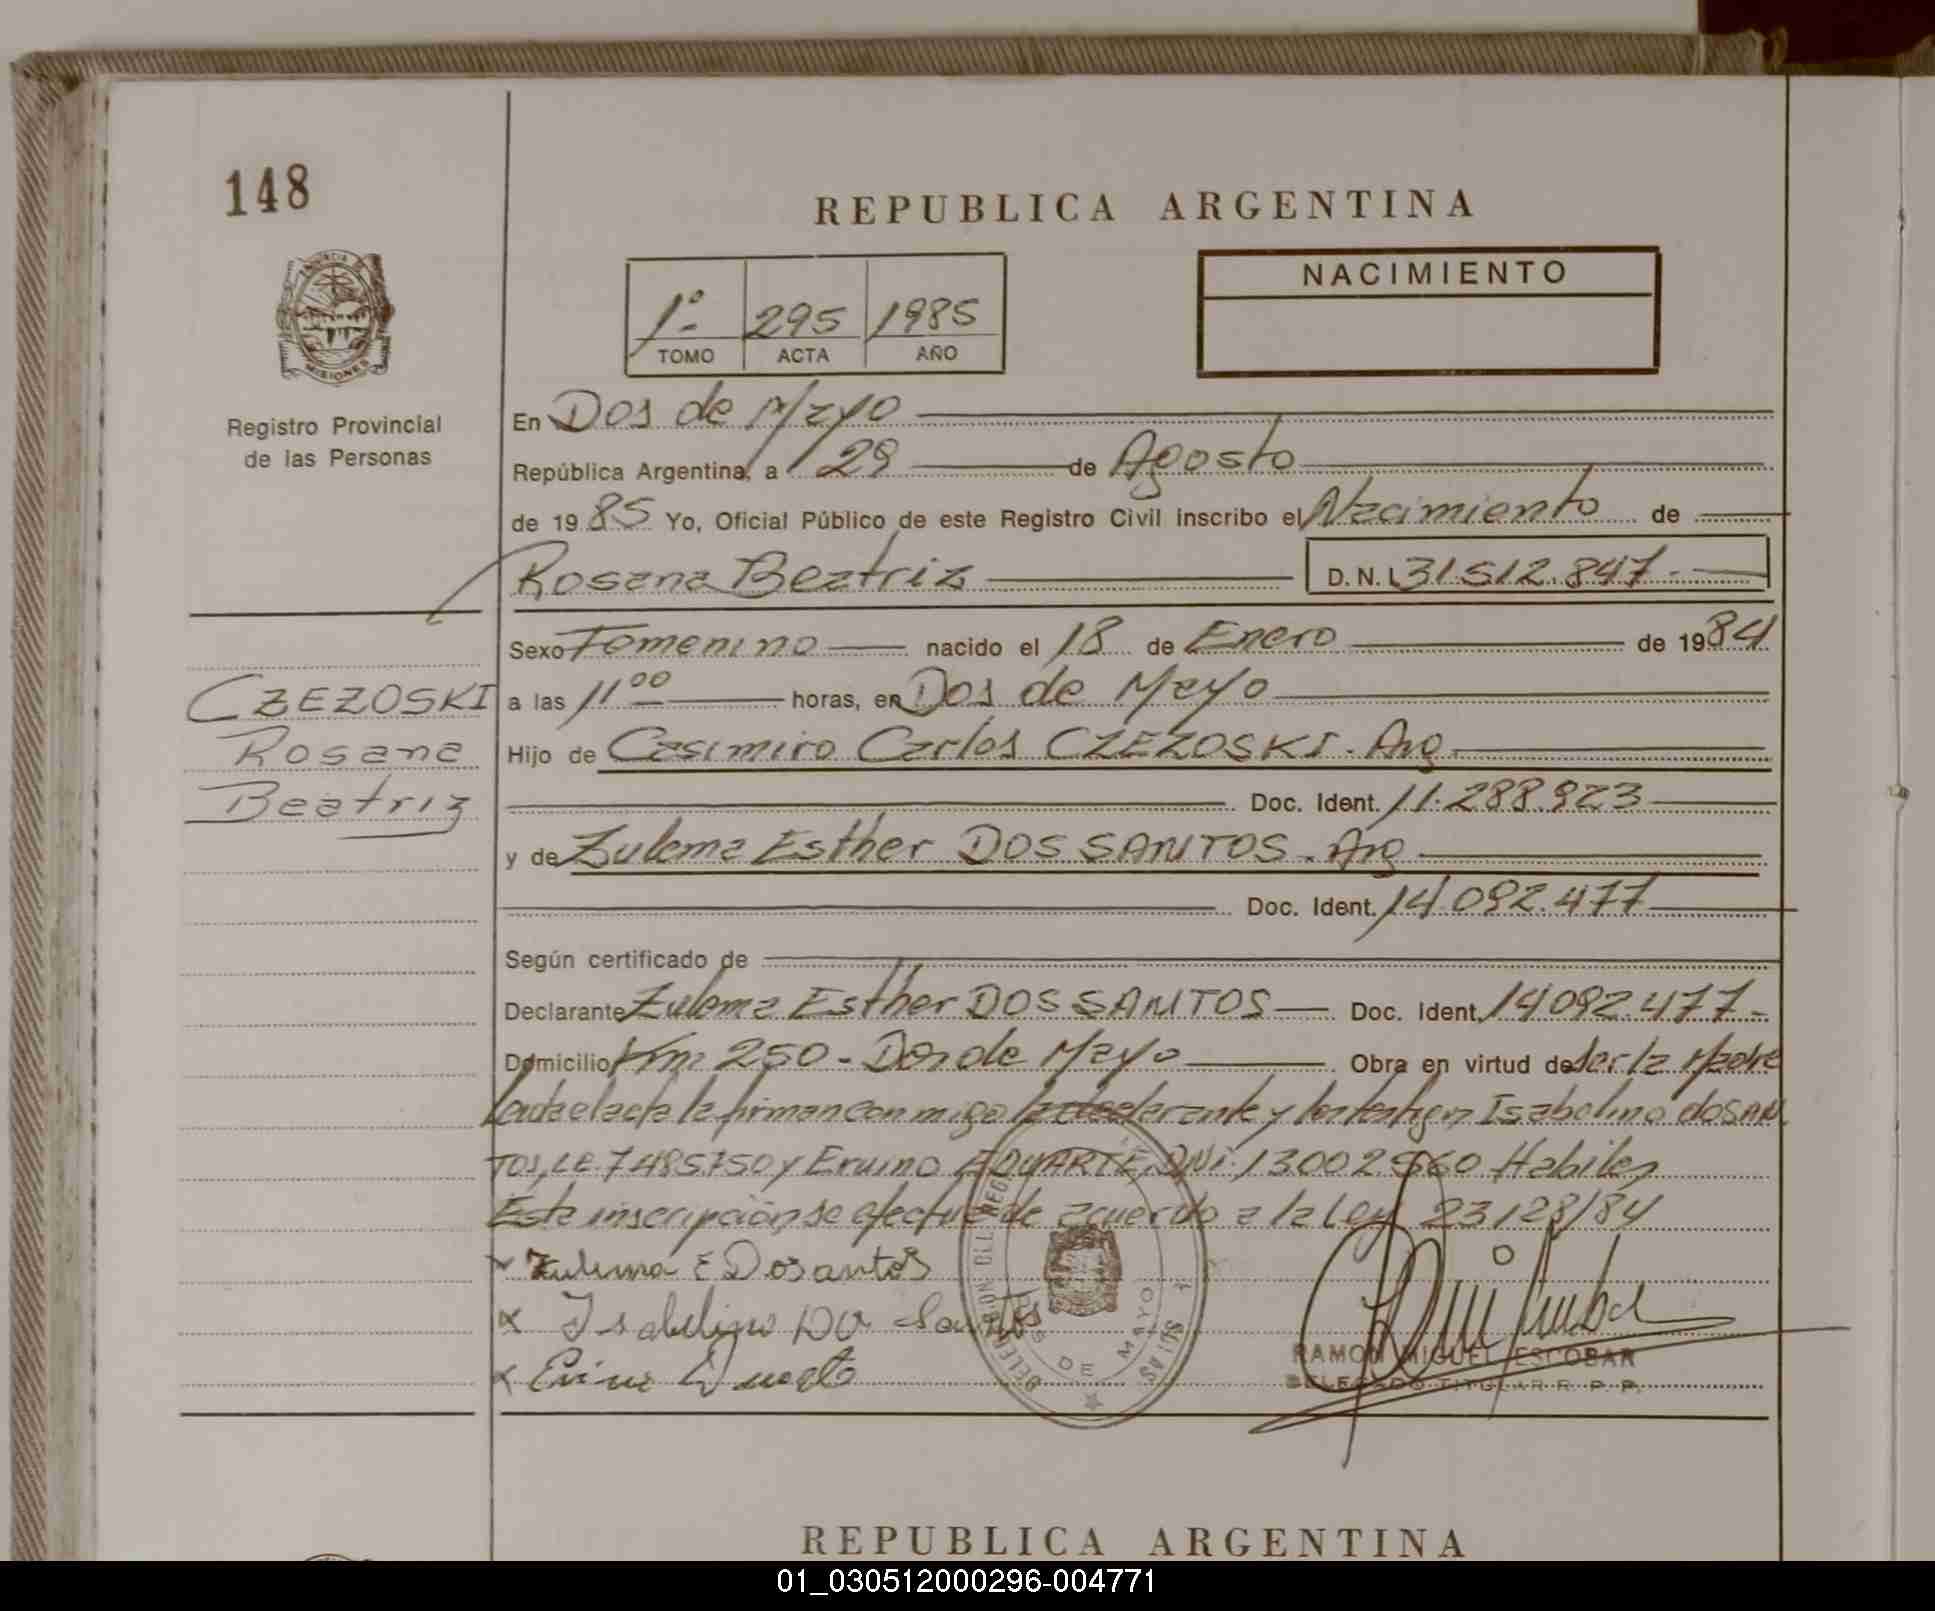 148
REPUBLICA ARGENTINA
PROVINCIA DE
MISIONES
Registro Provincial
de las Personas
1º 295 1985
TOMO ACTA AÑO
NACIMIENTO
En Dos de Mayo
República Argentina, a 29 de Agosto
de 1985 Yo, Oficial Público de este Registro Civil inscribo el Nacimiento de
Rosana Beatriz D.N.I. 31.512.847.-
Sexo Femenino nacido el 18 de Enero de 1984
CZEZOSKI
Rosana
Beatriz
a las 11 00 horas, en Dos de Mayo
Hijo de Casimiro Carlos CZEZOSKI. Arg.
Doc. Ident. 11.288.923
y de Zulema Esther DOS SANTOS. Arg
Doc. Ident. 14.092.477
Según certificado de
Declarante Zulema Esther DOS SANTOS Doc. Ident. 14.092.477.-
Domicilio Km 250 - Dos de Mayo Obra en virtud de ser la Madre
Leida el acta la firman conmigo la declarante y los testigos Isabelino doSAN
TOS, LE. 7485750 y Eruino DUARTE, DNI. 13002560 Habiles
Esta inscripción se efectua de acuerdo a la Ley 23128/84
Zulema E Dosantos
x Isabelino Do Santos
x
DOS DE MAYO
RAMON MIGUEL ESCOBAR
DELEGADO TITULAR R. P. P.
REPUBLICA ARGENTINA
01_030512000296-004771